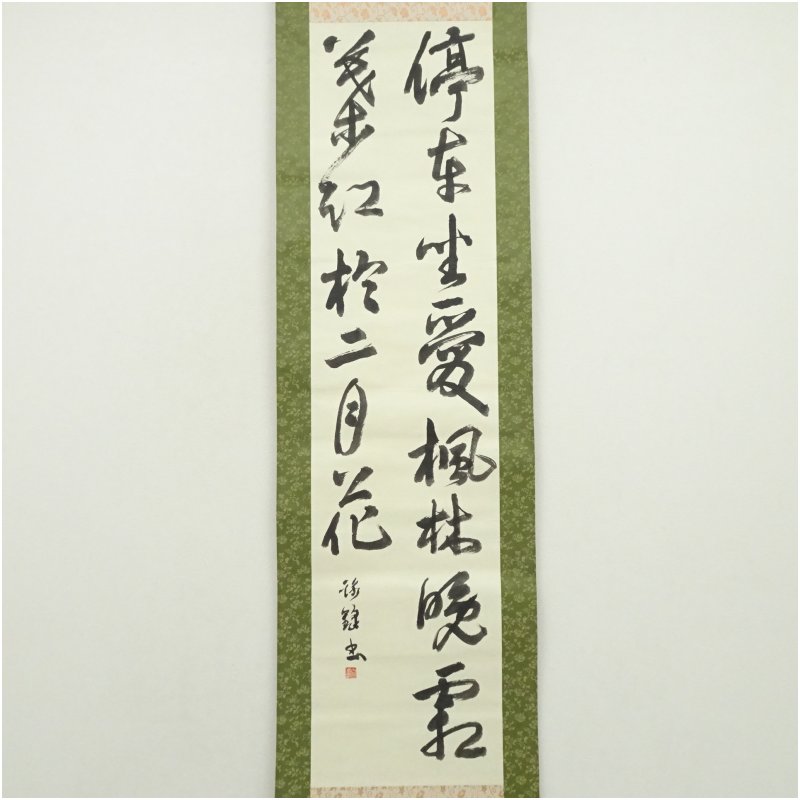 停车坐愛楓林晚霜
葉紅於二月花